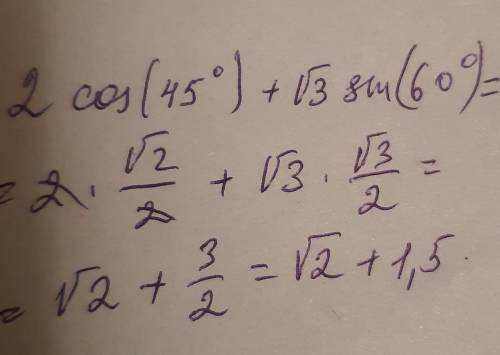 2 cos(45°) + √3 sin(60°) =
= 2 · √2/2 + √3 · √3/2 =
= √2 + 3/2 = √2 + 1,5.